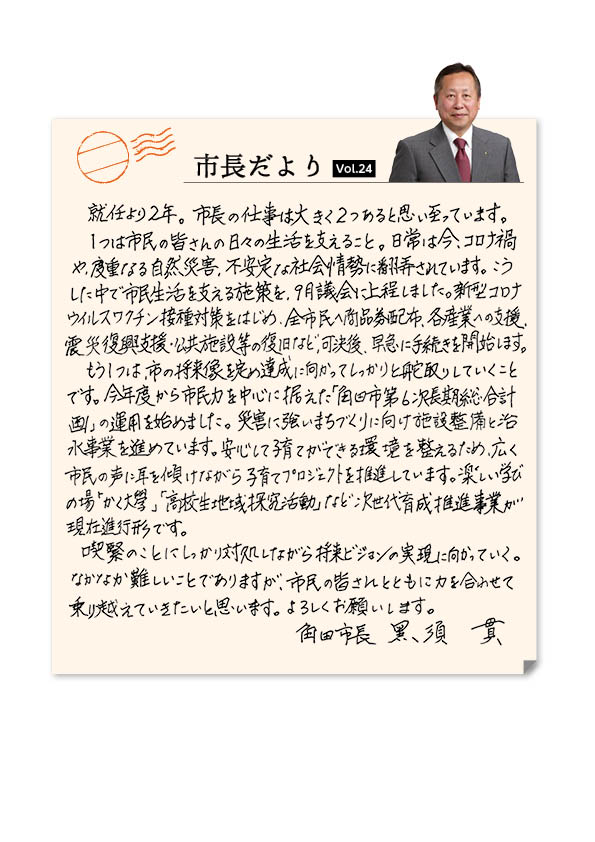 市長だより Vol.24
就任より2年。市長の仕事は大きく2つあると思い至っています。
1つは市民の皆さんの日々の生活を支えること。日常は今、コロナ禍
や、度重なる自然災害、不安定な社会情勢に翻弄されています。こう
した中で市民生活を支える施策を、9月議会に上程しました。新型コロナ
ウイルスワクチン接種対策をはじめ、全市民へ商品券配布、各産業への支援、
震災復興支援・公共施設等の復旧など、可決後、早急に手続きを開始します。
もう1つは、市の将来像を定め達成に向かってしっかりと舵取りしていくこと
です。今年度から市民力を中心に据えた「角田市第6次長期総合計
画」の運用を始めました。災害に強いまちづくりに向け施設整備と治
水事業を進めています。安心して子育てができる環境を整えるため、広く
市民の声に耳を傾けながら子育てプロジェクトを推進しています。楽しい学び
の場「かく大學」「高校生地域探究活動」など次世代育成推進事業が
現在進行形です。
喫緊のことにしっかり対処しながら将来ビジョンの実現に向かっていく。
なかなか難しいことでありますが、市民の皆さんとともに力を合わせて
乗り越えていきたいと思います。よろしくお願いします。
角田市長 黒須 貫